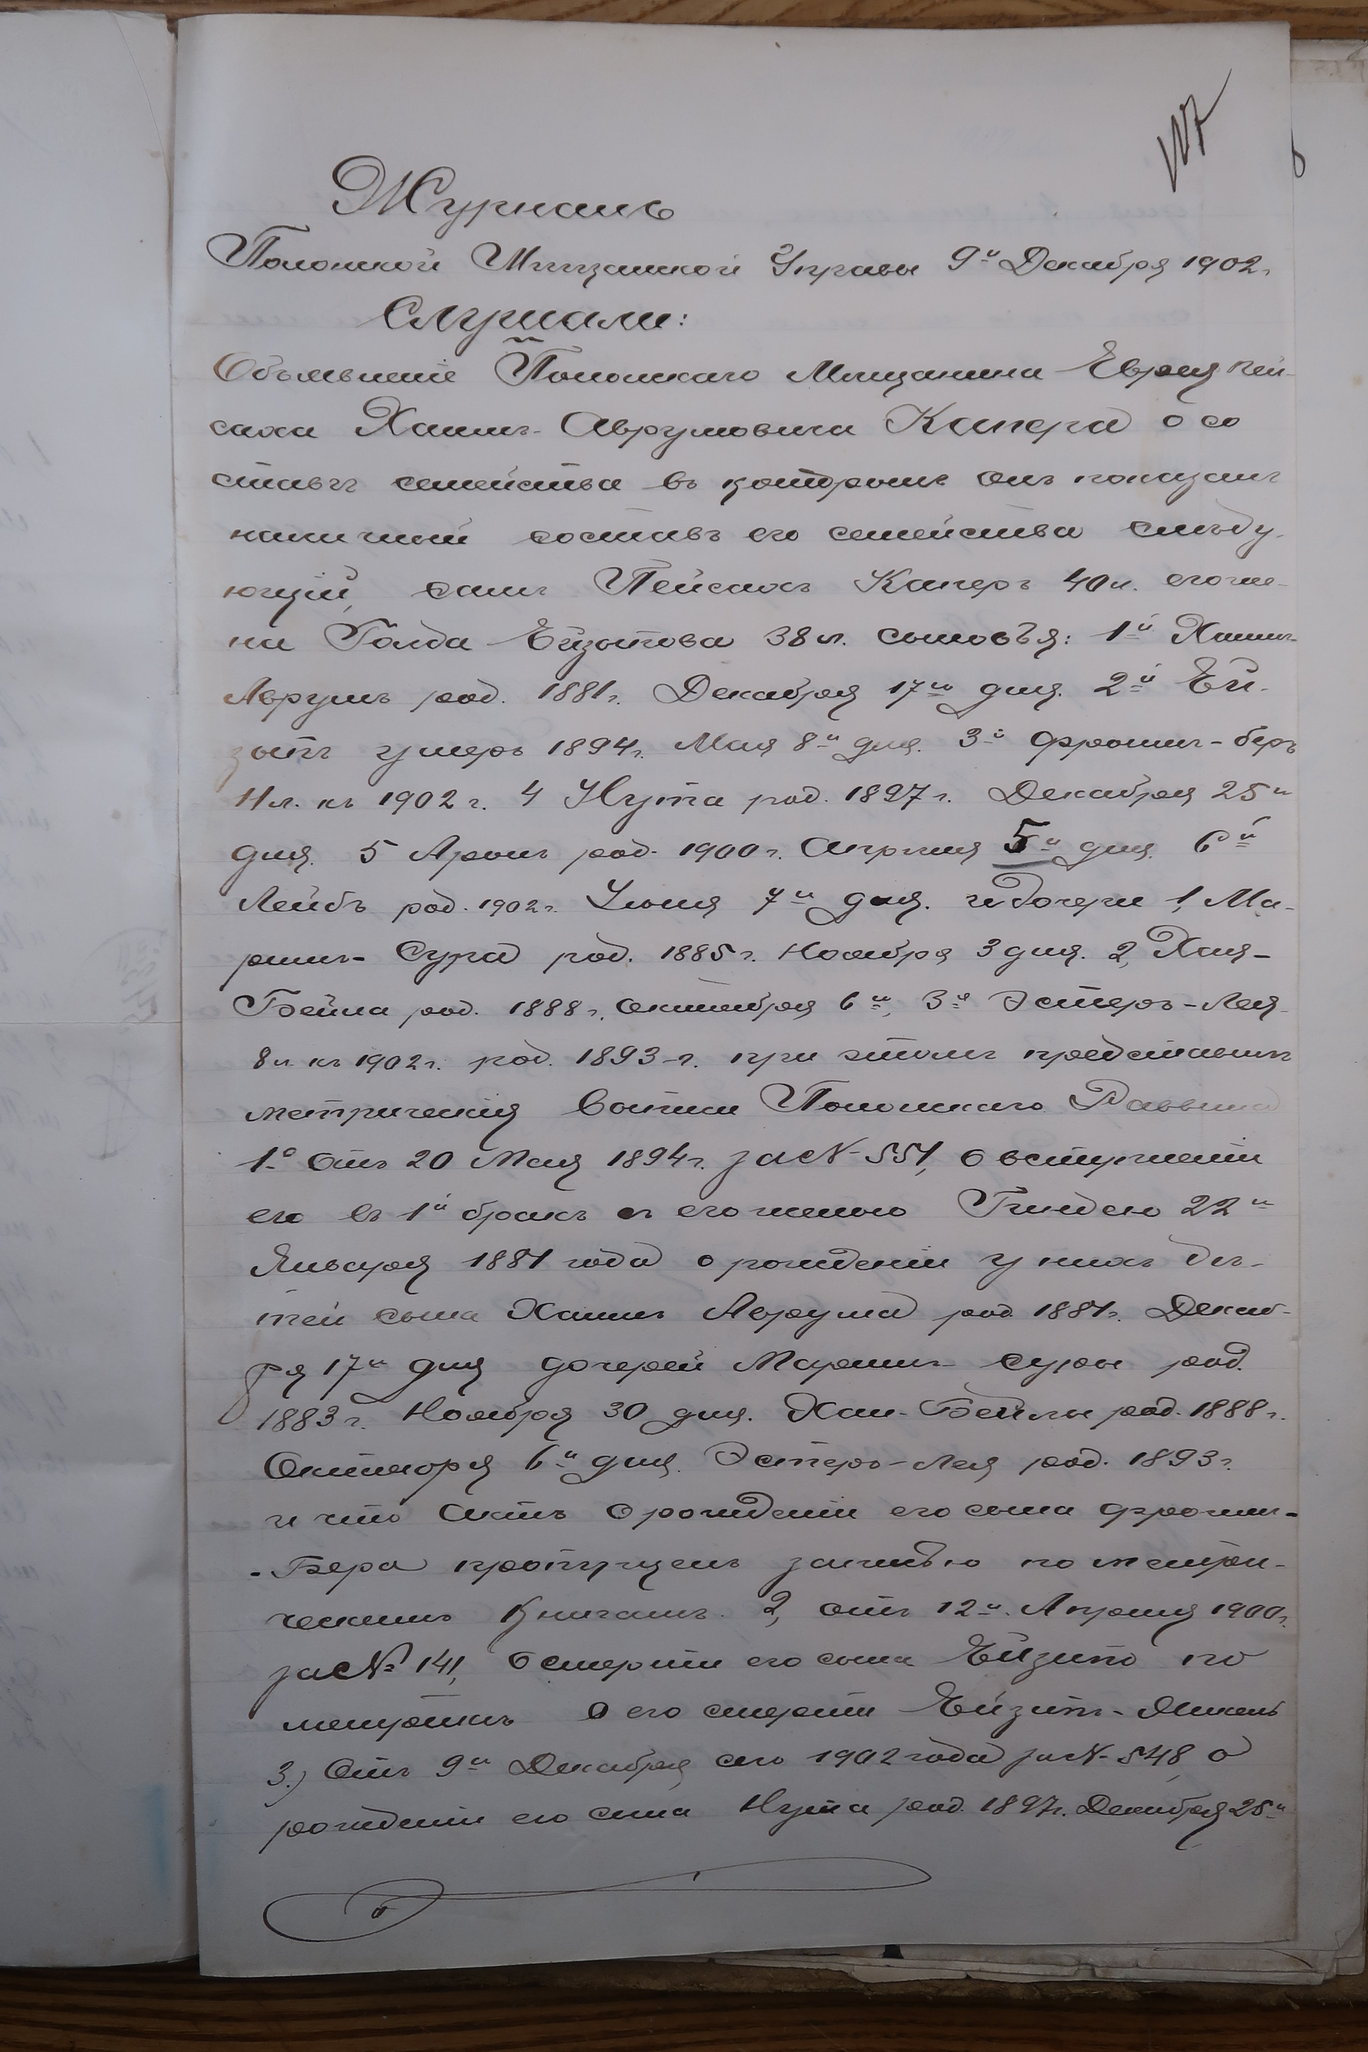 107
Журналъ
Полонской Мѣщанской Управы 9го Декабря 1902г.
Слушали:
Объявленіе Полонскаго Мѣщанина Еврея Пей-
саха Хаимъ-Аврумовича Канера о со
ставѣ семейства въ которомъ онъ показалъ
наличный составъ его семейства слѣду-
ющій, самъ Пейсахъ Канеръ 40л. его же-
на Голда Ейзыкова 38л. сыновья: 1й Хаимъ-
Аврумъ род. 1881г. Декабря 17го дня. 2й Ей-
зыкъ умеръ 1894г. Мая 8го дня. 3й Фроимъ-беръ
11л. къ 1902г. 4 Нута род. 1897г. Декабря 25го
дня. 5 Аронъ род. 1900г. Апрѣля 5го дня. 6й
Лейбъ род. 1902г. Іюня 7го дня. и дочери 1, Ма-
ріимъ-Сура род. 1885г. Ноября 3 дня. 2, Хая-
Бейла род. 1888г. Октября 6го, 3я Эстеръ-Лея
8л. къ 1902г. род. 1893г. при этомъ представилъ
метрическія выписи Полонскаго Раввина
1о отъ 20 Мая 1894г. за № 551, о вступленіи
его въ 1й бракъ съ его женою 22го
Января 1881 года о рожденіи у нихъ дѣ-
тей сына Хаимъ Аврума род. 1881г. Декаб-
ря 17го дня дочерей Маріимъ-Суры род.
1883г. Ноября 30 дня. Хаи-Бейлы род. 1888г.
Октября 6го дня. Эстеръ-Лея род. 1893г.
и что актъ о рожденіи его сына Фроимъ-
-Бера пропущенъ записью по метри-
ческимъ книгамъ. 2, отъ 12го Апрѣля 1900г.
за № 141, о смерти его сына Ейзыка по
метрикѣ о его смерти Ейзыкъ-
3.) Отъ 9го Декабря сего 1902 года за № 548, о
рожденіи его сына Нута род. 1897г. Декабря 25го